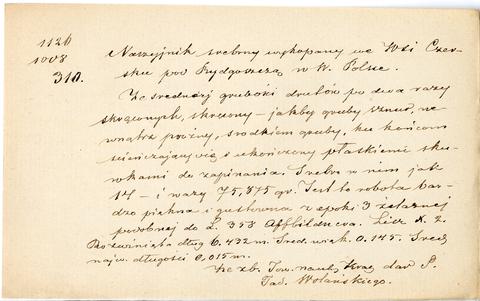 1126
1008
310.
Naszyjnik srebrny wykopany we Wsi Czer-
sku pod Bydgoszczą w W. Polsce.
Ze średniej grubości drutów po dwa razy
skręconych, skręcony – jakby gruby sznur, we
wnątrz próżny, środkiem gruby, ku końcom
ścieńczający się i ukończony płaskiemi sku-
wkami do zapinania. Srebro w nim jak
14 – i waży 75,875 gr. Jest to robota bar-
dzo piękna i gustowna z epoki 3 żelaznej
podobnej do L. 353 Affbildneva. Licz X. 2.
Rozwinięta dług 0.432 m. Śred. wnęk. 0.145. Śred
najw. długości 0,015 m.
Ze zb. Tow. nauk. Krak. dar P.
Tad. Wolańskiego.